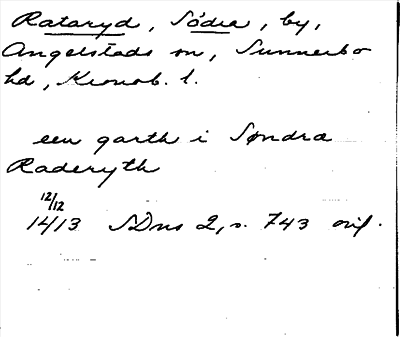 Rataryd, Södra, by,
Angelstads sn, Sunnerbo
hd, Kronob. l.
een garth i Søndra
Raderyth
12/12
1413 SDns 2, s. 743 orig.